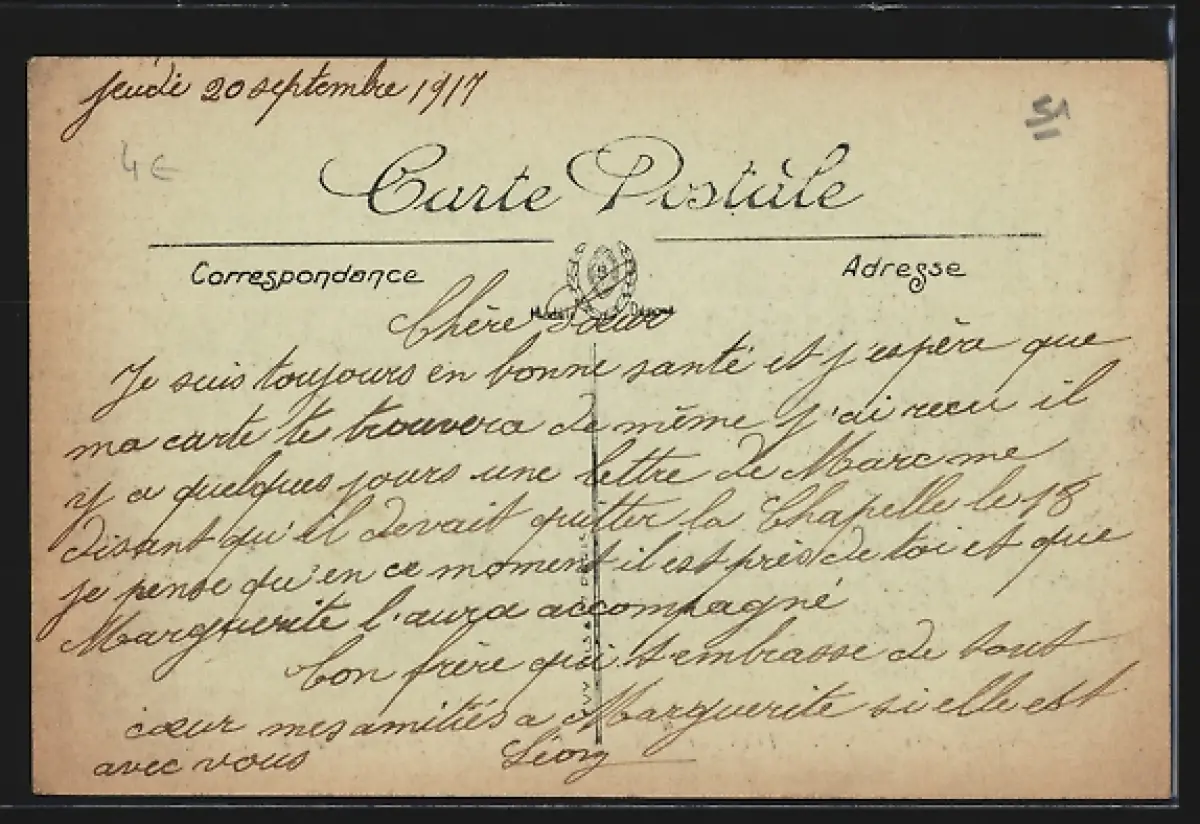 Jeudi 20 septembre 1917
51
4€
Carte Postale
Correspondance
Adresse
Modèle Déposé
Chère Sœur
Je suis toujours en bonne santé et j'espère que
ma carte te trouvera de même j'ai recu il
y a quelques jours une lettre de Marc me
disant qu'il devait quitter la Chapelle le 18
je pense qu'en ce moment il est près de toi et que
Marguerite l'aura accompagné
Ton frère qui t'embrasse de tout
cœur mes amitiés a Marguerite si elle est
avec vous